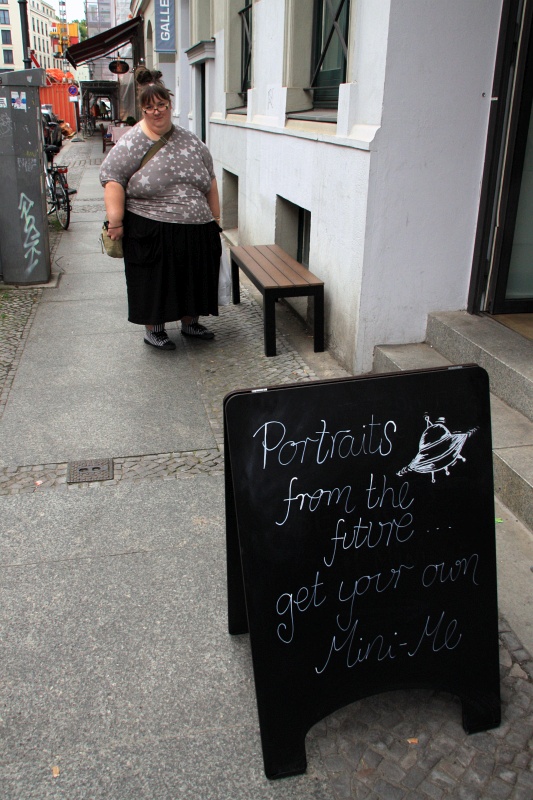 GALLE
Portraits
from the
future...
get your own
Mini-Me